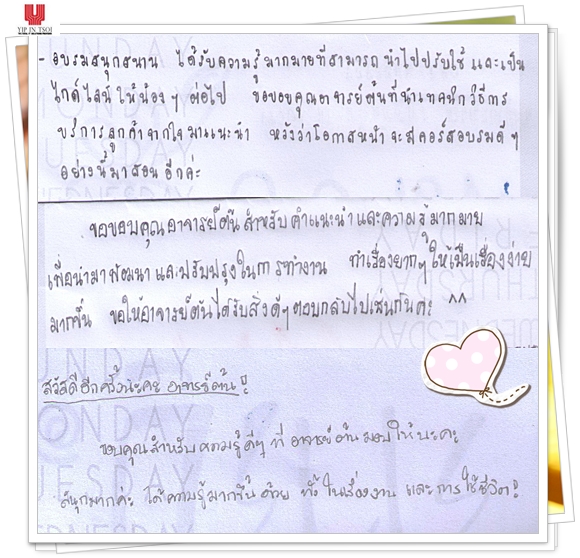 YIP IN TSOI
- อบรมสนุกสนาน ได้รับความรู้มากมายที่สามารถนำไปปรับใช้ และเป็น
ไกด์ไลน์ให้น้องๆ ต่อไป ขอขอบคุณอาจารย์ต้นที่นำเทคนิควิธีการ
บริการลูกค้าจากใจมาแนะนำ หวังว่าโอกาสหน้าจะมีคอร์สอบรมดีๆ
อย่างนี้มาสอนอีกค่ะ
ขอขอบคุณอาจารย์ต้นสำหรับคำแนะนำและความรู้มากมาย
เพื่อนำมาพัฒนาและปรับปรุงในการทำงาน ทำเรื่องยากๆ ให้เป็นเรื่องง่าย
มากขึ้น ขอให้อาจารย์ต้นได้รับสิ่งดีๆ ตอบกลับไปเช่นกันค่ะ ^^
สวัสดีอีกครั้งนะคะ อาจารย์ต้น!!
ขอบคุณสำหรับความรู้ดีๆ ที่อาจารย์ต้นมอบให้นะคะ
สนุกมากค่ะ ได้ความรู้มากขึ้นด้วย ทั้งในเรื่องงาน และการใช้ชีวิต!